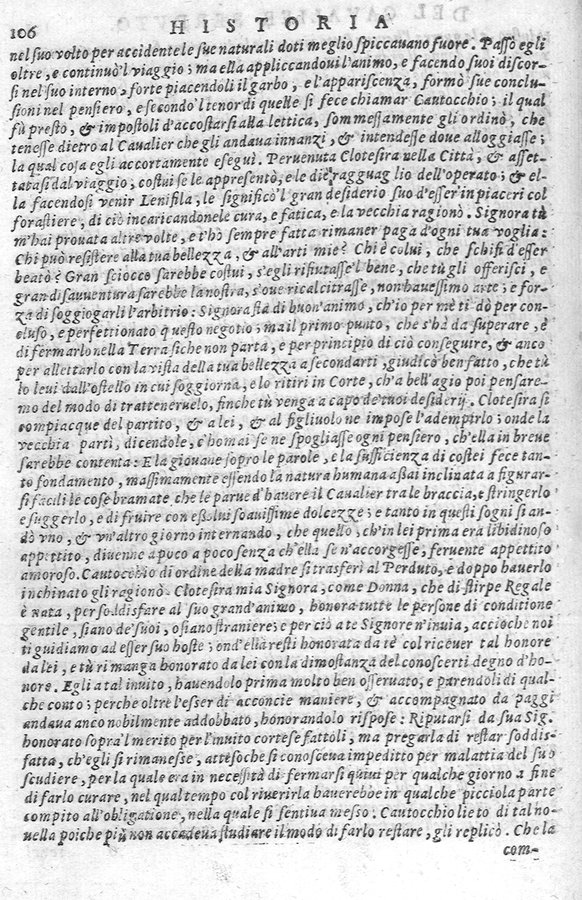 106 HISTORIA
nel suo volto per accidente le sue naturali doti meglio spiccauano fuore. Passò egli
oltre, e continuò'l viaggio; ma ella appliccandoui l'animo, e facendo suoi discor-
si nel suo interno, forte piacendoli il garbo, e l'appariscenza, formò sue conclu-
sioni nel pensiero, e secondo'l tenor di quelle si fece chiamar Cautocchio; il qual
fù presto, & impostoli d'accostarsi alla lettica, sommessamente gli ordinò, che
tenesse dietro al Caualier che gli andaua innanzi, & intendesse doue alloggiasse;
la qual cosa egli accortamente eseguì. Peruenuta Clotesira nella Città, & asset-
tatasi dal viaggio; costui se le appresentò, e le diè ragguag lio dell'operato; & el-
la facendosi venir Lenifila, le significò'l gran desiderio suo d'esser in piaceri col
forastiere, di ciò incaricandonele cura, e fatica, e la vecchia ragionò. Signora tù
m'hai prouata altre volte, e t'hò sempre fatta rimaner paga d'ogni tua voglia:
Chi può resistere alla tua bellezza, & all'arti mie? Chi è colui, che schifi d'esser
beato? Gran sciocco sarebbe costui, s'egli rifiutasse'l bene, che tù gli offerisci, e
gran disauuentura sarebbe la nostra, s'oue ricalcitrasse, non hauessimo arte; e for-
za di soggiogarli l'arbitrio: Signora stà di buon'animo, ch'io per me ti dò per con-
cluso, e perfettionato questo negotio; ma il primo punto, che s'hà da superare, è
di fermarlo nella Terra siche non parta, e per principio di ciò conseguire, & anco
per allettarlo con la vista della tua bellezza a secondarti, giudicò ben fatto, che tù
lo leui dall'ostello in cui soggiorna, e lo ritiri in Corte, ch'a bell'agio poi pensare-
mo del modo di trattenerúelo, finche tù venga a capo de'tuoi desiderij. Clotesira si
compiacque del partito, & a lei, & al figliuolo ne impose l'adempirlo; onde la
vecchia partì, dicendole, c'homai se ne spogliasse ogni pensiero, ch'ella in breve
sarebbe contenta: E la giouane sopro le parole, e la sufficienza di costei fece tan-
to fondamento, massimamente essendo la natura humana assai inclinata a figurar-
si facili le cose bramate, che le parue d'hauere il Caualier tra le braccia, e stringerlo
e suggerlo, e di fruire con essolui soauissime dolcezze; e tanto in questi sogni si an-
dò vno, & vn'altro giorno internando, che quello, ch'in lei prima era libidinoso
appetito, diuenne a poco a poco senza ch'ella se n'accorgesse, feruente appetito
amoroso. Cautocchio di ordine della madre si trasferì al Perduto, e doppo hauerlo
inchinato gli ragionò. Clotesira mia Signora, come Donna, che di stirpe Regale
è nata, per soddisfare al suo grand'animo, honora tutte le persone di conditione
gentile, siano de'suoi, o siano straniere; e per ciò a te Signore n'inuia, acciòche noi
ti guidiamo ad esser suo hoste; ond'ella resti honorata da tè col riceuer tal honore
da lei, e tù rimanga honorato da lei con la dimostanza del conoscerti degno d'ho-
nore. Egli a tal inuito, hauendolo prima molto ben osseruato, e parendoli di qual-
che conto; perche oltre l'esser di acconcie maniere, & accompagnato da paggi
andaua anco nobilmente addobbato, honorandolo rispose: Riputarsi da sua Sig.
honorato sopra'l merito per l'inuito cortese fattoli, ma pregarla di restar soddis-
fatta, ch'egli si rimanesse, attesoche si conosceua impeditto per malattia del suo
scudiere, per la quale era in necessità di fermarsi quiui per qualche giorno a fine
di farlo curare, nel qual tempo col riuerirla hauerebbe in qualche picciola parte
compito all'obligatione, nella quale si sentiua messo. Cautocchio lieto di tal no-
uella poiche più non accadeua studiare il modo di farlo restare, gli replicò. Che la
com-